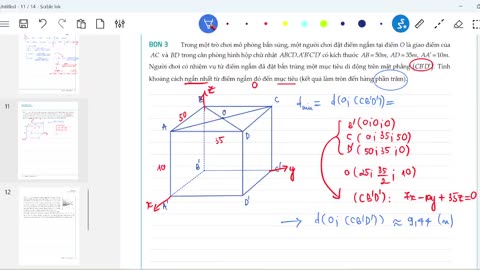 Untitled - 11 / 14 - Scrble Ink
BQN 3
Trong một trò chơi mô phỏng bắn súng, một người chơi đặt điểm ngắm tại điểm O là giao điểm của
AC và BD trong căn phòng hình hộp chữ nhật ABCD.A'B'C'D' có kích thước AB = 50m, AD = 35m, AA' = 10m.
Người chơi có nhiệm vụ từ điểm ngắm đã đặt bắn trúng một mục tiêu di động trên mặt phẳng (CB'D'). Tính
khoảng cách ngắn nhất từ điểm ngắm đó đến mục tiêu (kết quả làm tròn đến hàng phần trăm).
z
O
B
C
50
O
A
35
D
10
B'
C'
y
x
A'
D'
d min = d(O; (CB'D')) =
B'(0;0;0)
C(0;35;50)
D'(50;35;0)
O(25; 35/2; 10)
(CB'D'): 7x - 10y + 35z = 0
→ d(O; (CB'D')) ≈ 9,44 (m)
11
12